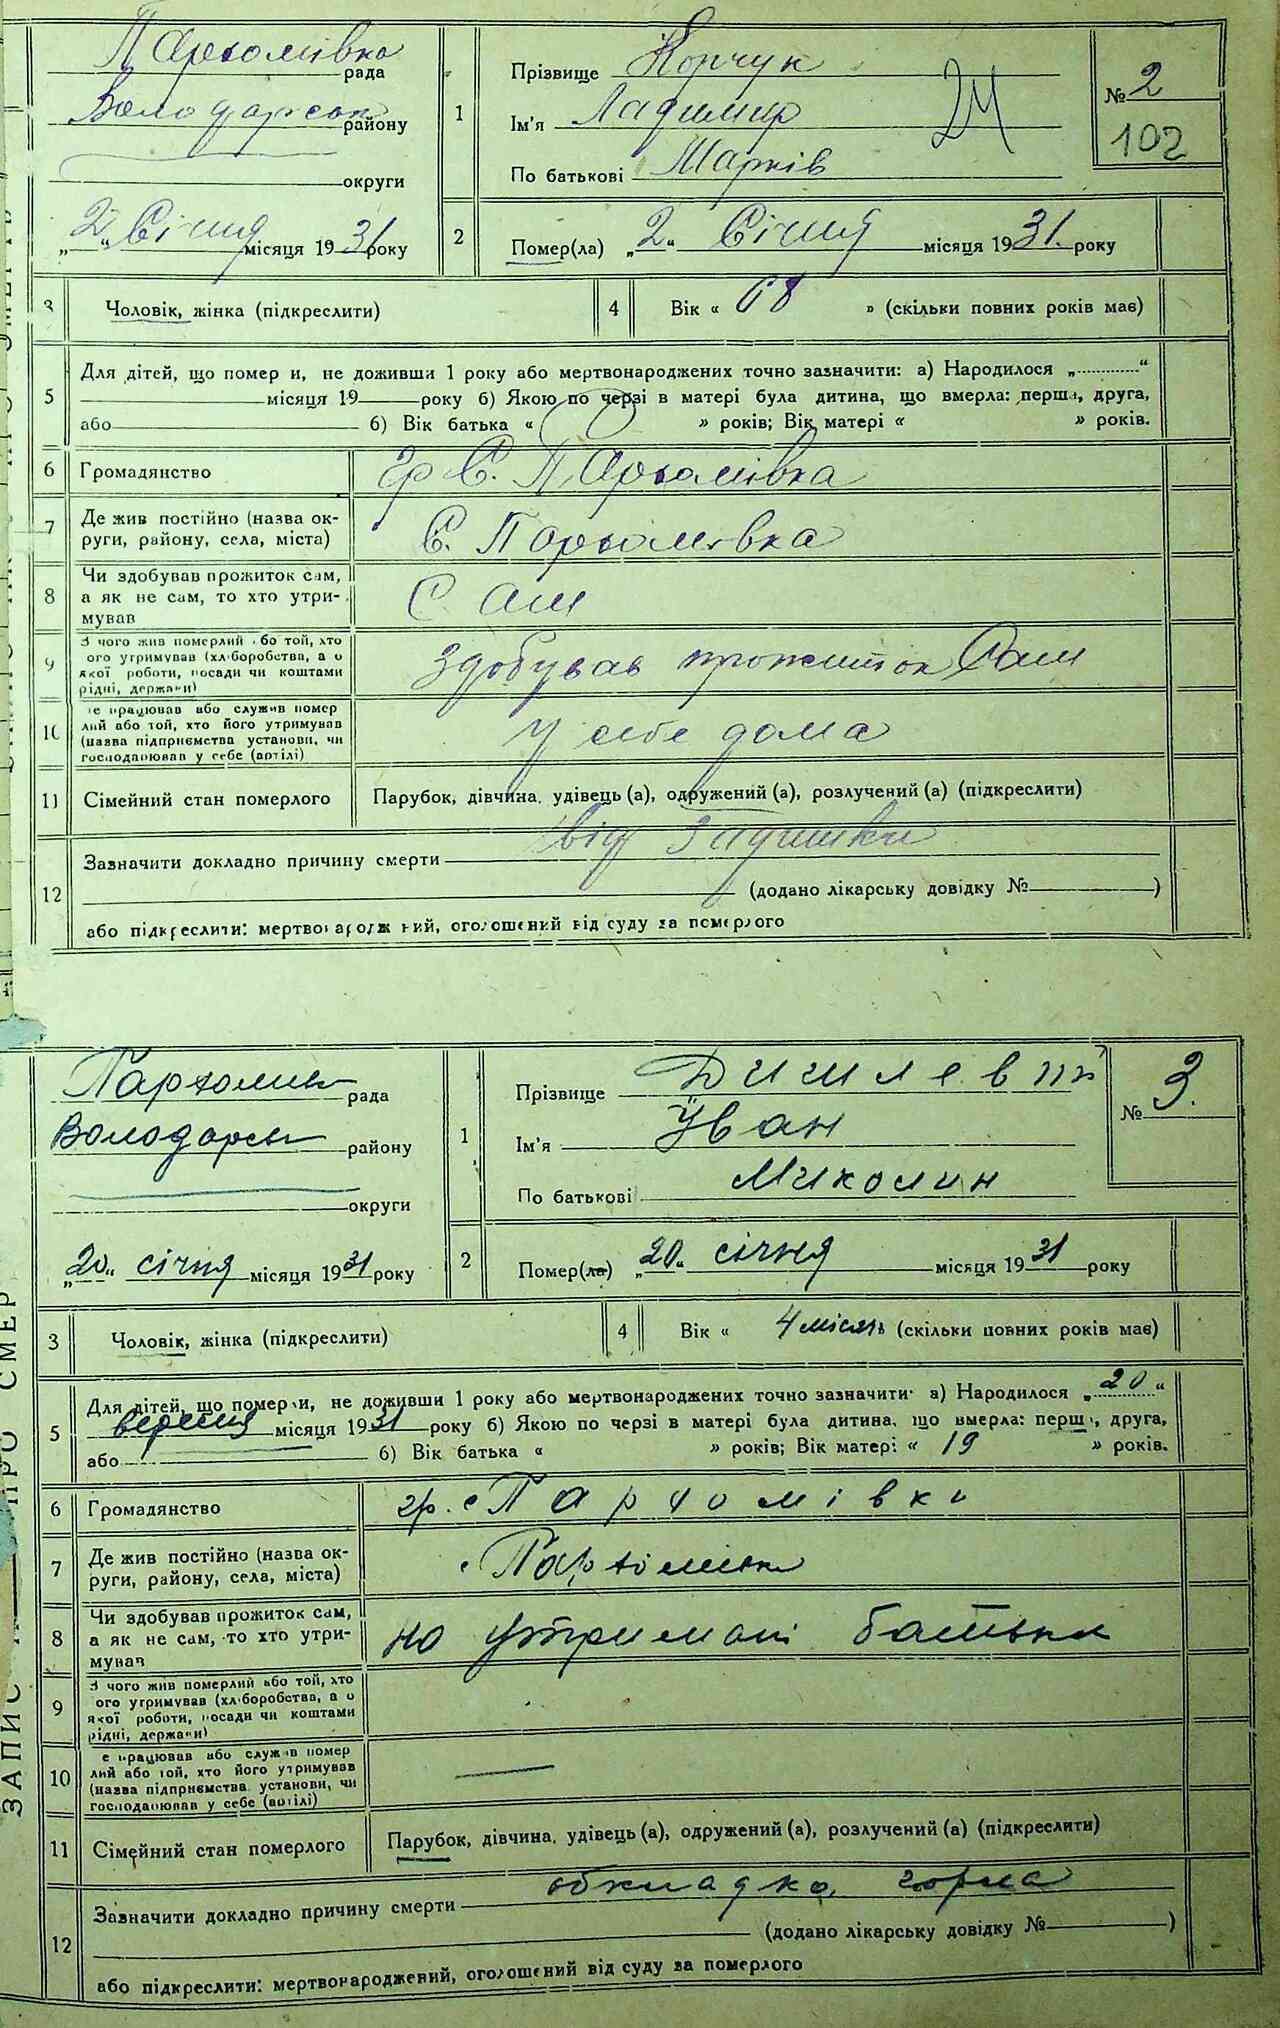 Пархомівка рада
Володарськ району
округи
„2“ Січня місяця 1931 року
1 Прізвище Корчук
Ім'я Ладимир
По батькові Марків
24
№ 2
102
2 Помер(ла) „2“ Січня місяця 1931. року
3 Чоловік, жінка (підкреслити)
4 Вік « 68 » (скільки повних років має)
5 Для дітей, що померли, не доживши 1 року або мертвонароджених точно зазначити: а) Народилося „ “
місяця 19 року б) Якою по черзі в матері була дитина, що вмерла: перша, друга,
або б) Вік батька « » років; Вік матері « » років.
6 Громадянство гр С. Пархомівка
7 Де жив постійно (назва ок-
руги, району, села, міста) С. Пархомівка
8 Чи здобував прожиток сам,
а як не сам, то хто утри-
мував Сам
9 З чого жив померлий або той, хто
ого утримував (хліборобства, а о
якої роботи, посади чи коштами
рідні, держави) Здобував прожиток Сам
10 е працював або служив помер
лий або той, хто його утримував
(назва підприємства установи, чи
господарював у себе (артілі) У себе дома
11 Сімейний стан померлого Парубок, дівчина, удівець (а), одружений (а), розлучений (а) (підкреслити)
12 Зазначити докладно причину смерти від Задишки
(додано лікарську довідку № )
або підкреслити: мертвонароджений, оголошений від суду за померлого
Пархомівк рада
Володарськ району
округи
„20“ січня місяця 1931 року
1 Прізвище Дишлевий
Ім'я Іван
По батькові Миколин
№ 3.
2 Помер(ла) „20“ січня місяця 1931 року
3 Чоловік, жінка (підкреслити)
4 Вік « 4 місяць (скільки повних років має)
5 Для дітей, що померли, не доживши 1 року або мертвонароджених точно зазначити: а) Народилося „20“
вересня місяця 1931 року б) Якою по черзі в матері була дитина, що вмерла: перша, друга,
або б) Вік батька « » років; Вік матері « 19 » років.
6 Громадянство гр. с Пархомівки
7 Де жив постійно (назва ок-
руги, району, села, міста) с Пархомівка
8 Чи здобував прожиток сам,
а як не сам, то хто утри-
мував на утримані батька
9 З чого жив померлий або той, хто
ого утримував (хліборобства, а о
якої роботи, посади чи коштами
рідні, держави)
10 е працював або служив помер
лий або той, хто його утримував
(назва підприємства установи, чи
господарював у себе (артілі)
11 Сімейний стан померлого Парубок, дівчина, удівець (а), одружений (а), розлучений (а) (підкреслити)
12 Зазначити докладно причину смерти обкладка горла
(додано лікарську довідку № )
або підкреслити: мертвонароджений, оголошений від суду за померлого
ЗАПИС ПРО СМЕР